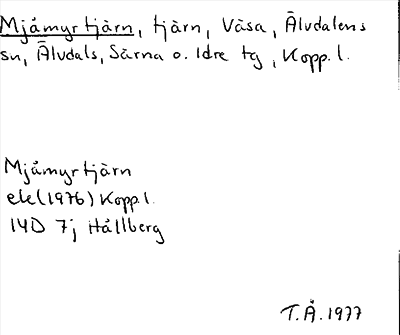 Mjåmyrtjärn, tjärn, Väsa, Älvdalens
sn, Älvdals, Särna o. Idre tg, Kopp. l.
Mjåmyrtjärn
ek (1976) Kopp. l.
14D 7j Hållberg
T.Å. 1977